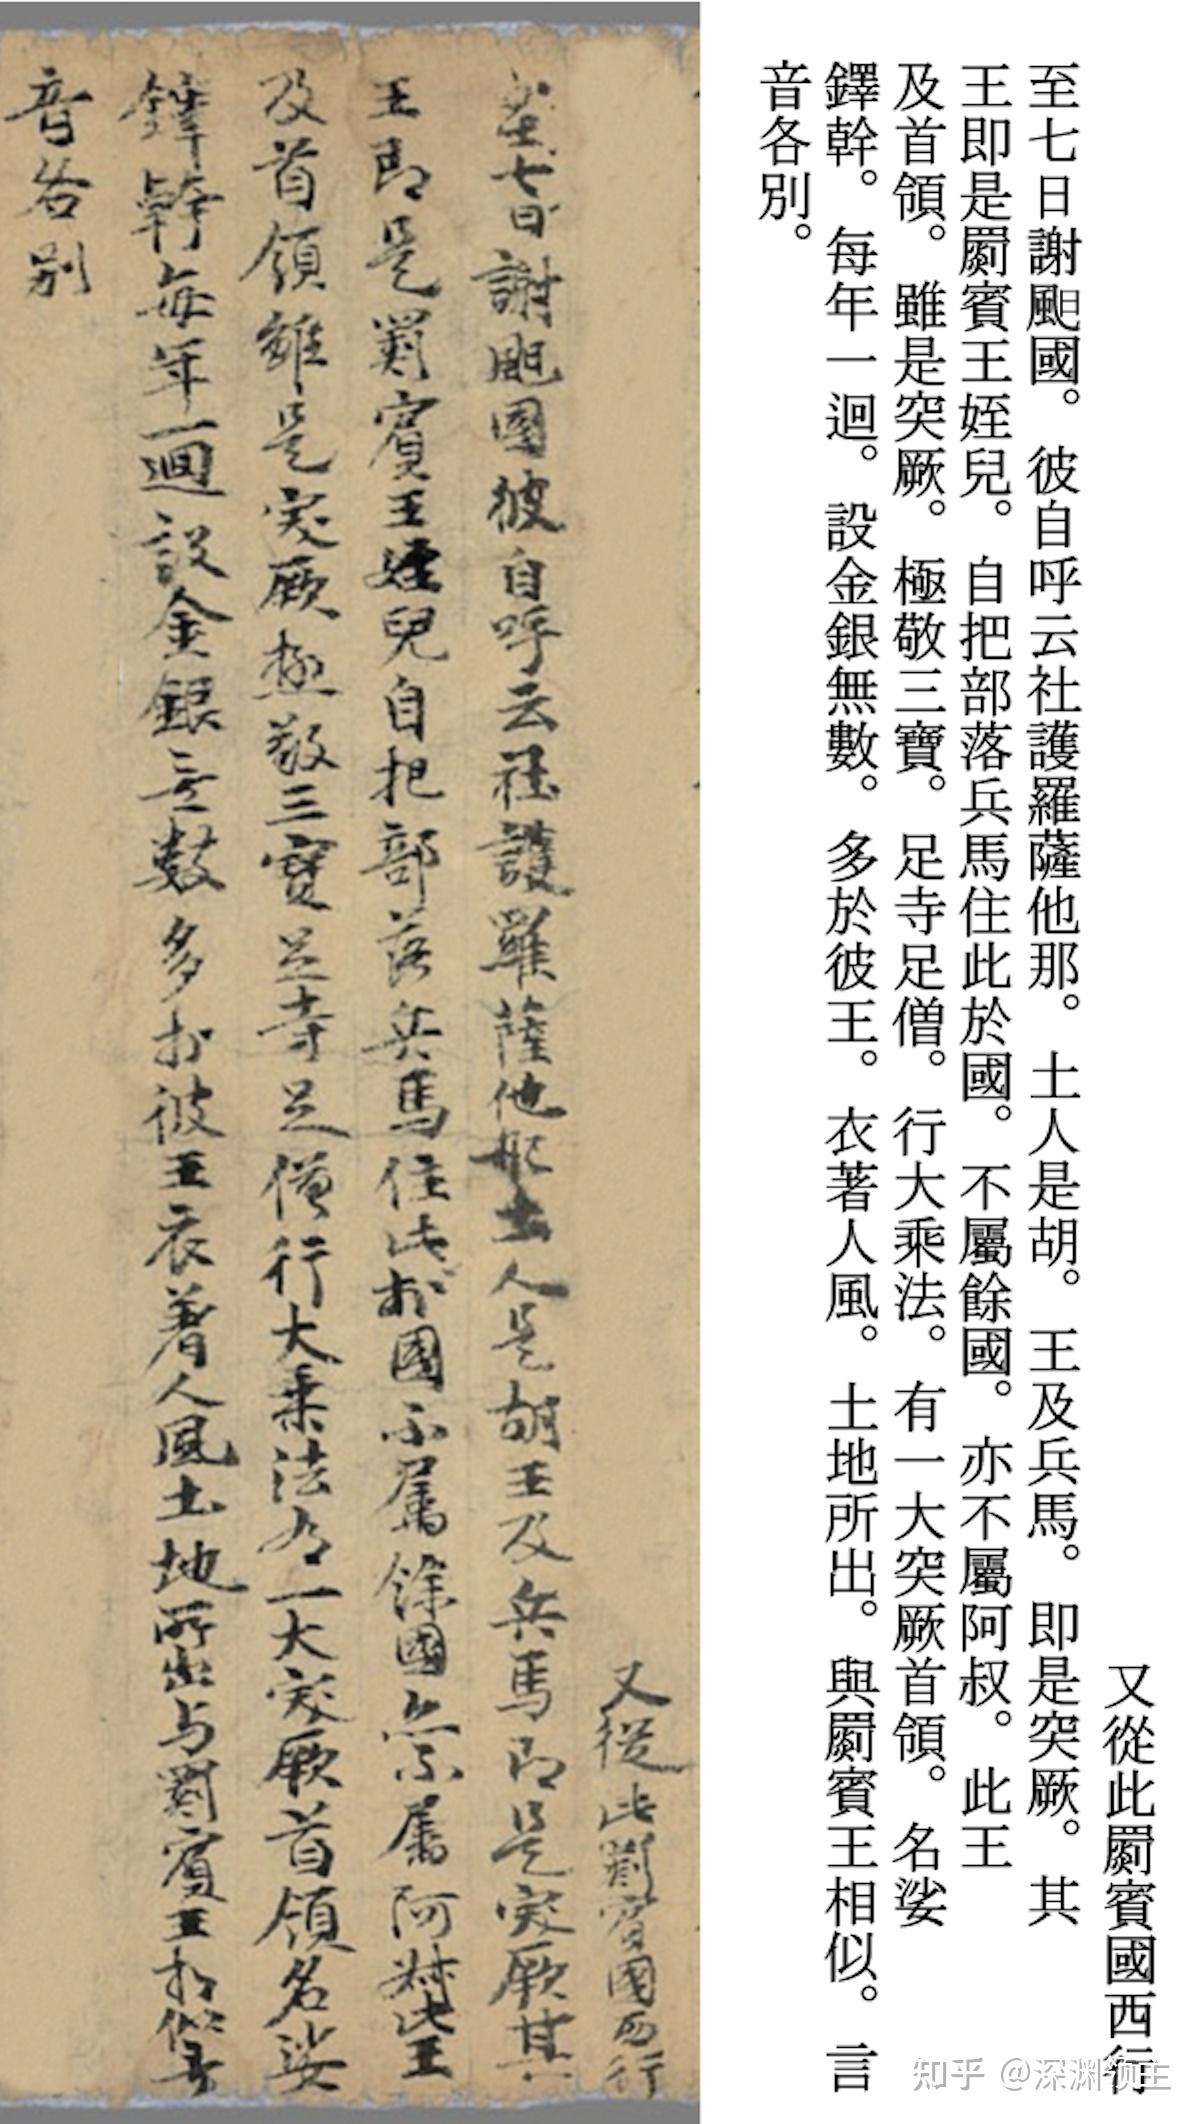 又從此罽賓國西行
至七日謝䫻國。彼自呼云社護羅薩他那。土人是胡。王及兵馬。即是突厥。其
王即是罽賓王姪兒。自把部落兵馬住此於國。不屬餘國。亦不屬阿叔。此王
及首領。雖是突厥。極敬三寶。足寺足僧。行大乘法。有一大突厥首領。名娑
鐸幹。每年一迴。設金銀無數。多於彼王。衣著人風。土地所出。與罽賓王相似。言
音各別。
知乎 @深渊领主
又從此罽賓國西行
至七日謝䫻國彼自呼云社護羅薩他那土人是胡王及兵馬即是突厥其
王即是罽賓王姪兒自把部落兵馬住此於國不屬餘國亦不屬阿叔此王
及首領雖是突厥極敬三寶足寺足僧行大乘法有一大突厥首領名娑
鐸幹每年一迴設金銀无數多於彼王衣著人風土地所出与罽賓王相似言
音各別